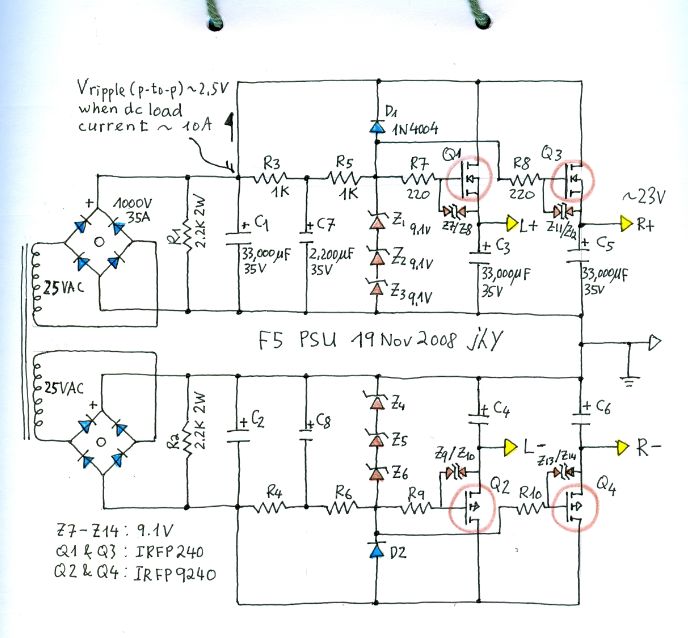 Vripple (p-to-p) ~ 2,5V
when dc load
current ~ 10A
D1
1N4004
Q1
Q3
R3
1K
R5
1K
R7
220
R8
220
~23V
+
1000V
35A
R1
2.2K 2W
+ C1
33,000µF
35V
+ C7
2,200µF
35V
Z1 9.1V
Z2 9.1V
Z3 9.1V
Z7/Z8
L+
Z11/Z12
R+
+ C3
33,000µF
35V
+ C5
33,000µF
35V
25VAC
F5 PSU 19 Nov 2008 jky
25VAC
+
R2
2.2K 2W
+ C2
+ C8
Z4
Z5
Z6
+ C4
+ C6
Z9/Z10
L-
Z13/Z14
R-
R4
R6
R9
Q2
R10
Q4
D2
Z7-Z14: 9.1V
Q1 & Q3: IRFP240
Q2 & Q4: IRFP9240